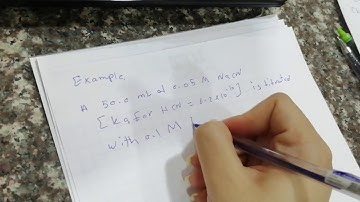 Example
A 50.0 mL of 0.05 M NaCN
[ka for HCN = 6.2x10⁻¹⁰] is titrated
with 0.1 M